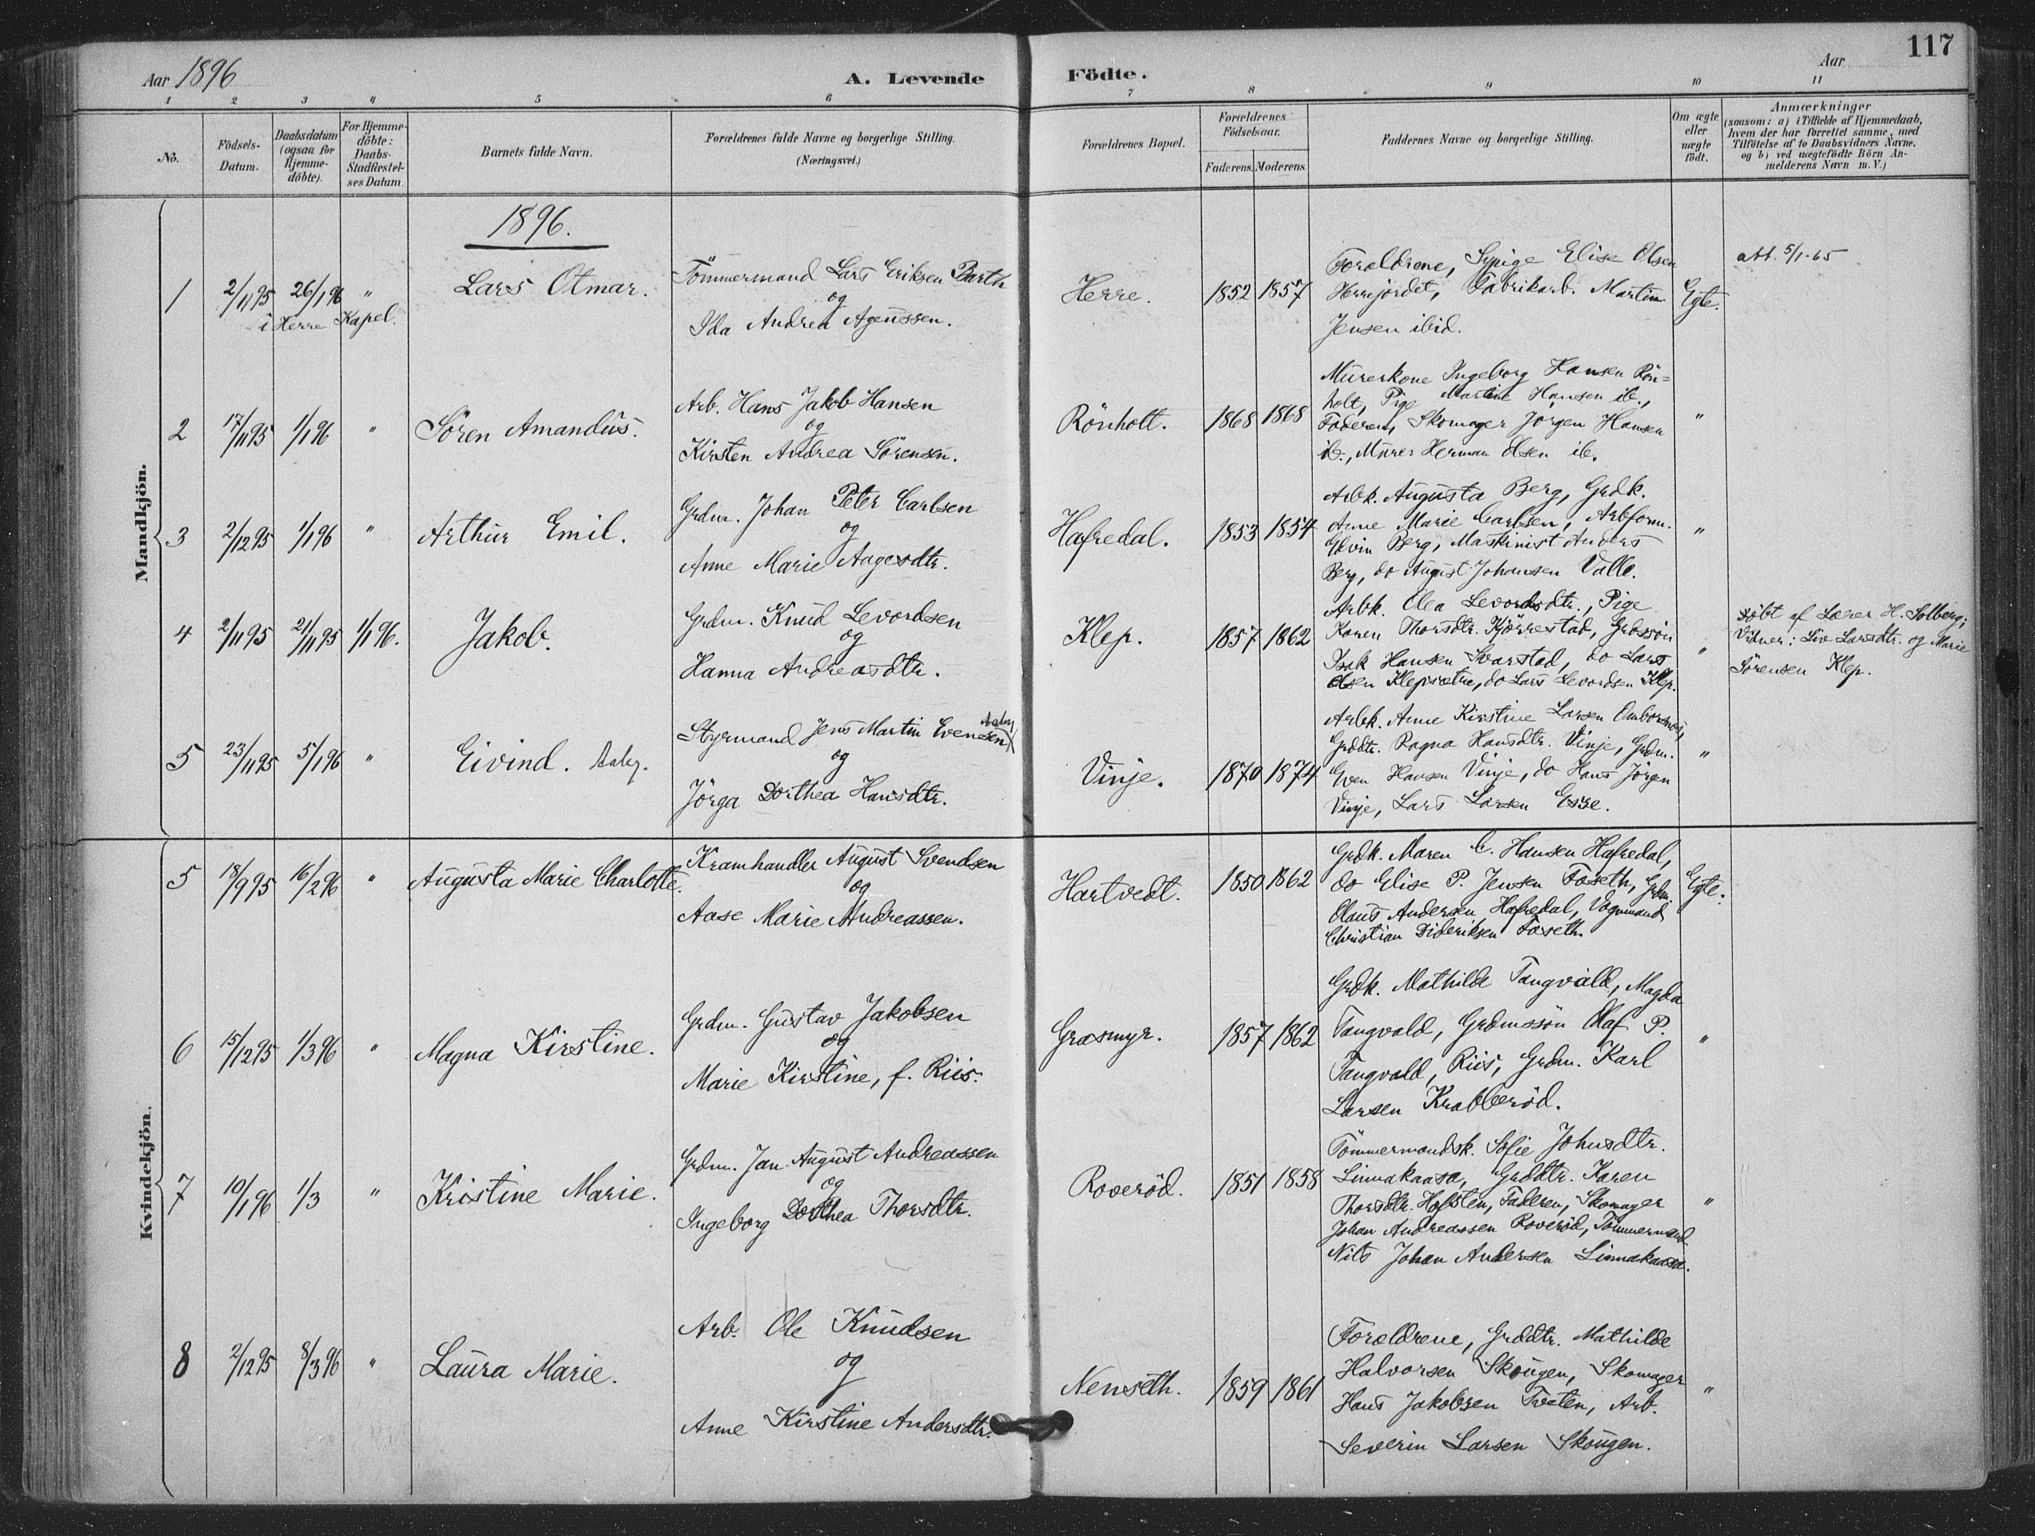 117
Aar 1896
A. Levende
Födte.
Aar
1 2 3 4 5 6 7 8 9 10 11
No.
Födsels-Datum.
Daabsdatum (ogsaa for Hjemme-döbte).
For Hjemme-döbte: Daabs-Stadfæstel-ses Datum.
Barnets fulde Navn.
Forældrenes fulde Navne og borgerlige Stilling.
(Næringsvei.)
Forældrenes Bopæl.
Forældrenes Födselsaar.
Faderens.
Moderens.
Faddernes Navne og borgerlige Stilling.
Om ægte eller uægte födt.
Anmærkninger
(saasom: a) i Tilfælde af Hjemmedaab, hvem der har forrettet samme, med Tilföielse af to Daabsvidners Navne, og b) ved uægtefödte Börn An-melderens Navn m.V.)
Mandkjön.
1896.
1 2/11 95 26/1 96 " Lars Otmar.
i Herre Kapel.
Tömmermand Lars Eriksen Barth
og
Ida Andrea Agenssen.
Herre. 1852 1857
Forældrene, Sypige Elise Olsen
Herrejordet, Fabrikarb. Martin
Jensen ibid.
Egte.
att. 5/1-65
2 17/11 95 1/1 96 " Sören Amandus.
Arb. Hans Jakob Hansen
og
Kirsten Andrea Sörensen.
Rönholt. 1868 1868
Murerkone Ingeborg Hansen Rön=
holt, Pige Martine Hansen ib.,
Faderen, Skomager Jörgen Hansen
ib., Murer Herman Olsen ib.
"
3 2/12 95 1/1 96 " Arthur Emil.
Grdm. Johan Peter Carlsen
og
Anne Marie Aagesdtr.
Hafredal. 1853 1854
Arbk. Augusta Berg, Grdk.
Anne Marie Carlsen, Arbform.
Edvin Berg, Maskinist Anders
Berg, do August Johansen Valle.
"
4 2/11 95 21/11 95 1/1 96. Jakob.
Grdm. Knud Levordsen
og
Hanna Andreasdtr.
Klep. 1857 1862
Arbk. Olea Levordsdtr., Pige
Karen Thorsdtr. Kjörrestad, Grdssön
Isak Hansen Svarstad, do Lars
Olsen Klepsætre, do Lars Levordsen Klep.
"
Döbt af Lærer H. Solberg;
Vidner: Liv Larsdtr. og Marie
Sörensen Klep.
5 23/11 95 5/1 96 " Eivind. Aaby.
Styrmand Jens Martin Evensen Aaby
og
Jörga Dorthea Hansdtr.
Vinje. 1870 1874
Arbk. Anne Kirstine Larsen Omborsnes,
Grddtr. Ragna Hansdtr. Vinje, Grdm.
Even Hansen Vinje, do Hans Jörgen
Vinje, Lars Larsen
"
Kvindekjön.
5 18/9 95 16/2 96 " Augusta Marie Charlotte.
Kramhandler August Svendsen
og
Aase Marie Andreassen.
Hartvedt. 1850 1862
Grdk. Maren C. Hansen Hafredal,
do Elise P. Jensen Fosseth, Grdm.
Olaus Andersen Hafredal, Vognmand
Christian Dideriksen Fosseth.
Egte.
6 15/12 95 1/3 96 " Magna Kirstine.
Grdm. Gustav Jakobsen
og
Marie Kirstine, f. Riis.
Grasmyr. 1857 1862
Grdk. Mathilde Tangvald, Magda
Tangvald, Grdmssön Olaf P.
Tangvald, Riis, Grdm. Karl
Larsen Krabberöd.
"
7 10/1 96 1/3 " Kristine Marie.
Grdm. Jan August Andreassen
og
Ingeborg Dorthea Thorsdtr.
Roveröd. 1851 1858
Tömmermandsk. Sofie Johnsdtr.
Linnakaasa, Grddtr. Karen
Thorsdtr. Hafsten, Faderen, Skomager
Johan Andreassen Roveröd, Tömmermand
Nils Johan Andersen Linnakaasa.
"
8 2/12 95 8/3 96 " Laura Marie.
Arb. Ole Knudsen
og
Anne Kirstine Andersdtr.
Nenseth. 1859 1861
Forældrene, Grddtr. Mathilde
Halvorsen Skougen, Skomager
Hans Jakobsen Tveten, Arb.
Severin Larsen Skougen.
"